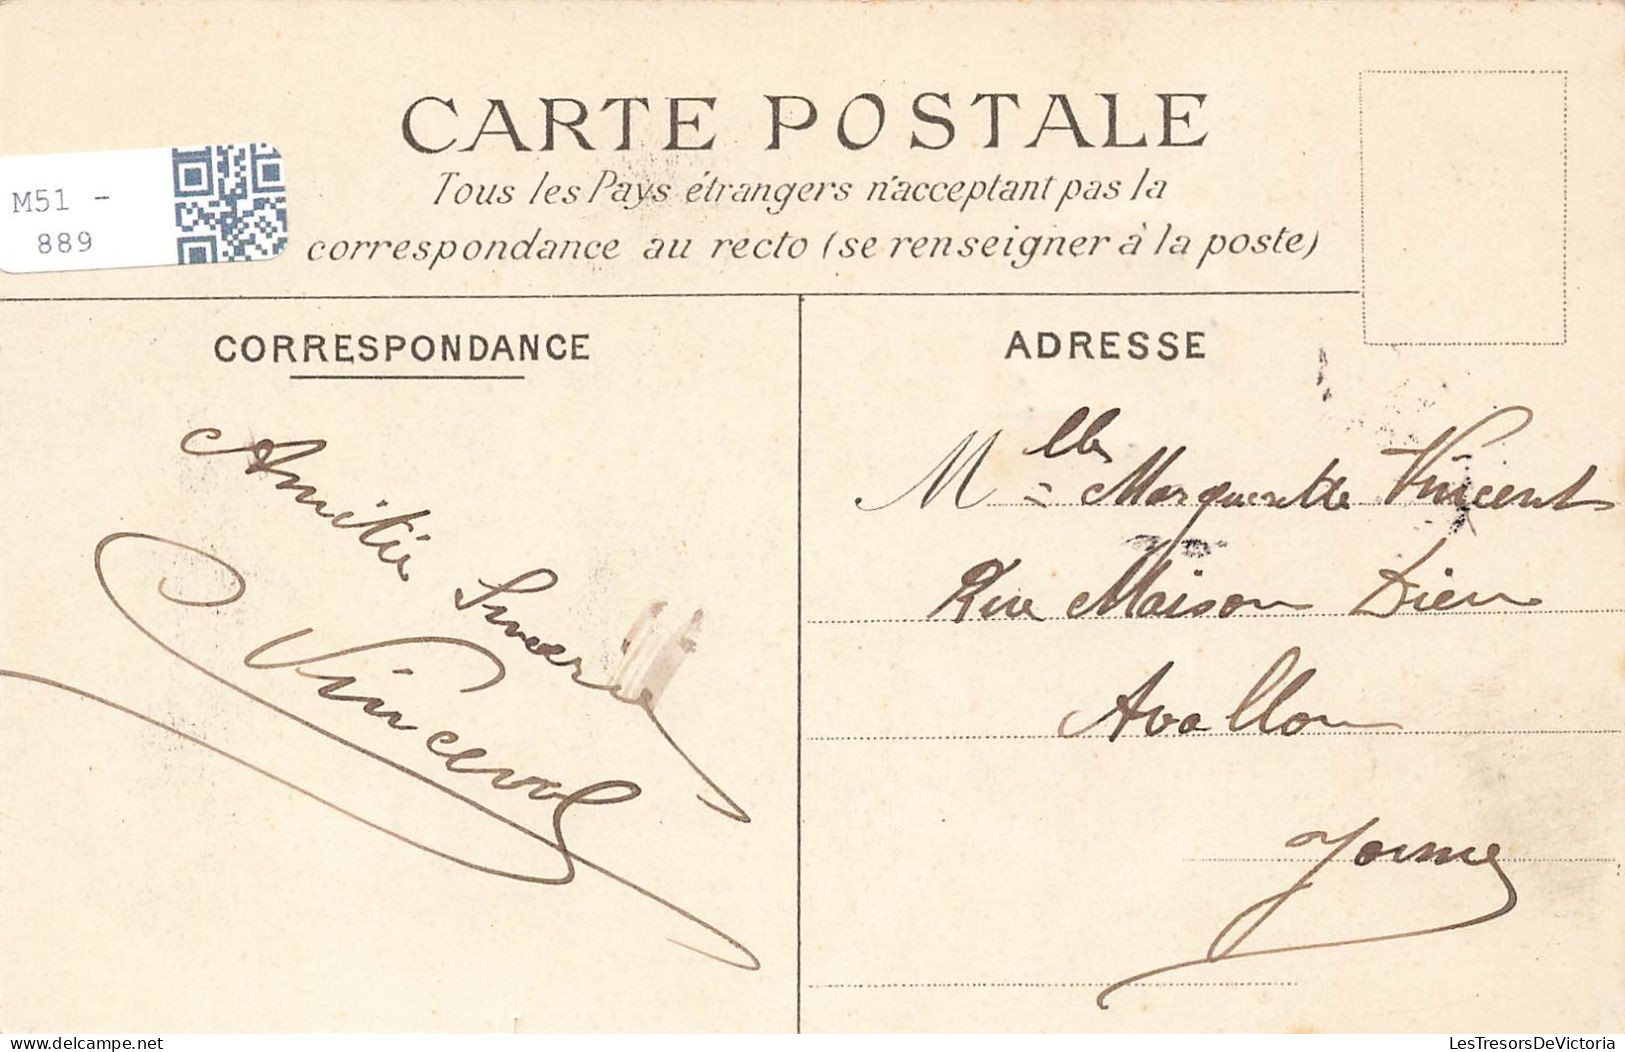 CARTE POSTALE
Tous les Pays étrangers n'acceptant pas la
correspondance au recto (se renseigner à la poste)
M51 -
889
CORRESPONDANCE
Amitié Sincère
ADRESSE
Mlle Marguerite Vincent
Rue Maison Dieu
Avallon
Yonne
delcampe.net
LesTresorsDeVictoria